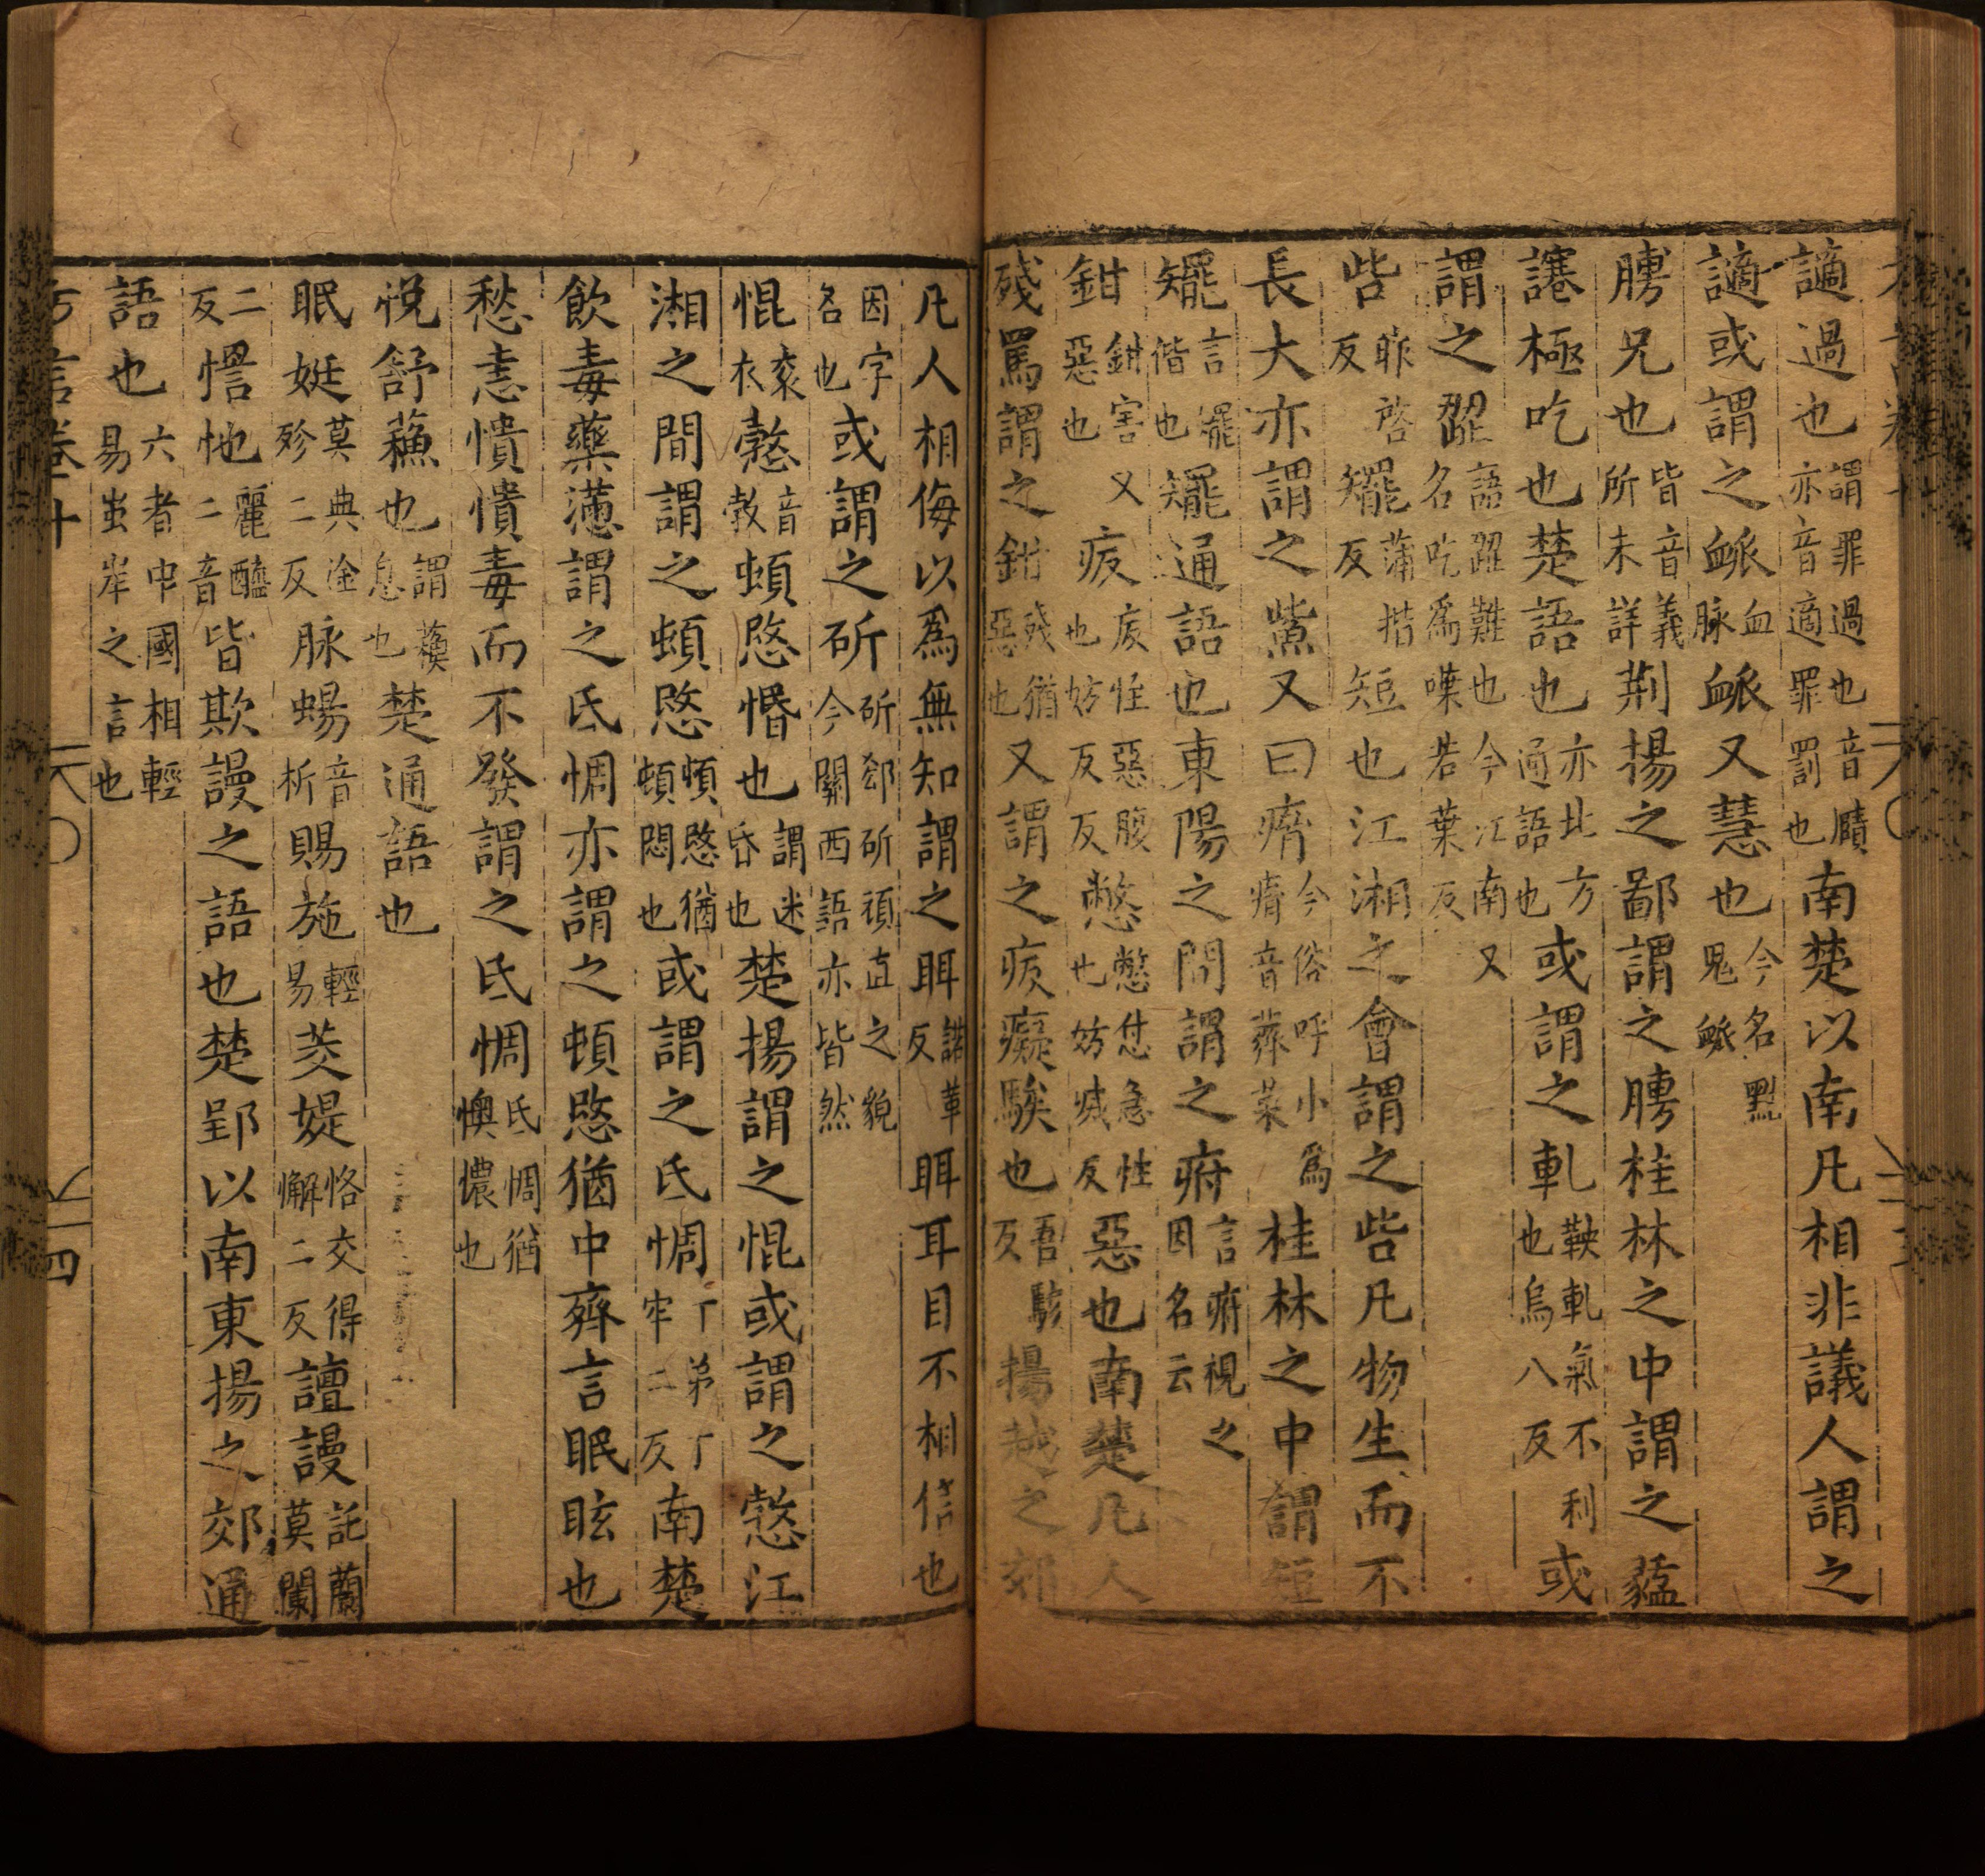 讁過也謂罪過也音賾亦音適罪罰也南楚以南凡相非議人謂之
讁或謂之衇血脉衇又慧也今名黠鬼衇
䏁兄也皆音義所未詳荆揚之鄙謂之䏁桂林之中謂之䋽
讓極吃也楚語也亦北方通語也或謂之軋鞅軋氣不利也烏八反或
謂之䶥語䶥難也今江南又名吃為㗼若葉反
呰昨啓反矲蒲楷反短也江湘之會謂之呰凡物生而不
長大亦謂之鮆又曰㾹今俗呼小為㾹音薺菜桂林之中謂短
矲言矲偕也矲通語也東陽之間謂之府言府視之因名云
鉗鉗害又惡也疲疲恎惡腹也妨反反憋憋怤急性也妨滅反惡也南楚凡人
殘罵謂之鉗殘猶惡也又謂之疲癡騃也吾駭反揚越之郊
凡人相侮以為無知謂之眲諾革反眲耳目不相信也
因字各也或謂之斫斫郄斫頑直之貌今關西語亦皆然
惃衮衣憝音教頓愍惛也謂迷昏也楚揚謂之惃或謂之憝江
湘之間謂之頓愍頓愍猶頓悶也或謂之氐惆丁弟丁牢二反南楚
飲毒藥懣謂之氐惆亦謂之頓愍猶中齊言眠眩也
愁恚憒憒毒而不發謂之氐惆氐惆猶懊憹也
悅舒蘓也謂蘓息也楚通語也
眠娗莫典淦殄二反脉蝪音析賜施輕易茭媞恪交得懈二反譠謾託蘭莫闌
二反㦟忚麗醯二音皆欺謾之語也楚郢以南東揚之郊通
語也六者中國相輕易蚩岸之言也
方言卷十
四